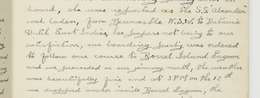 board, she was reported as the S.S.
and laden, from Newcastle N.S.W. to Batavia
Dutch East Indies, her papers not being to our
satisfaction, our boarding party was ordered
to follow our course to Rossel Island Lagoon
and we proceeded on our journey north, the weather
was beautifully fine and at 3 P.M. on the 10th
we anchored under inside Rossel Lagoon, the